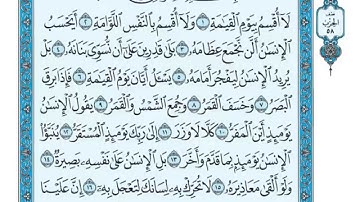 لَآ أُقْسِمُ بِيَوْمِ ٱلْقِيَٰمَةِ ١ وَلَآ أُقْسِمُ بِٱلنَّفْسِ ٱللَّوَّامَةِ ٢ أَيَحْسَبُ
ٱلْإِنسَٰنُ أَلَّن نَّجْمَعَ عِظَامَهُۥ ٣ بَلَىٰ قَٰدِرِينَ عَلَىٰٓ أَن نُّسَوِّىَ بَنَانَهُۥ ٤ بَلْ
يُرِيدُ ٱلْإِنسَٰنُ لِيَفْجُرَ أَمَامَهُۥ ٥ يَسْـَٔلُ أَيَّانَ يَوْمُ ٱلْقِيَٰمَةِ ٦ فَإِذَا بَرِقَ
ٱلْبَصَرُ ٧ وَخَسَفَ ٱلْقَمَرُ ٨ وَجُمِعَ ٱلشَّمْسُ وَٱلْقَمَرُ ٩ يَقُولُ ٱلْإِنسَٰنُ
يَوْمَئِذٍ أَيْنَ ٱلْمَفَرُّ ١٠ كَلَّا لَا وَزَرَ ١١ إِلَىٰ رَبِّكَ يَوْمَئِذٍ ٱلْمُسْتَقَرُّ ١٢ يُنَبَّؤُا۟
ٱلْإِنسَٰنُ يَوْمَئِذٍۭ بِمَا قَدَّمَ وَأَخَّرَ ١٣ بَلِ ٱلْإِنسَٰنُ عَلَىٰ نَفْسِهِۦ بَصِيرَةٌ ١٤
وَلَوْ أَلْقَىٰ مَعَاذِيرَهُۥ ١٥ لَا تُحَرِّكْ بِهِۦ لِسَانَكَ لِتَعْجَلَ بِهِۦٓ ١٦ إِنَّ عَلَيْنَا
الحزب
٥٨